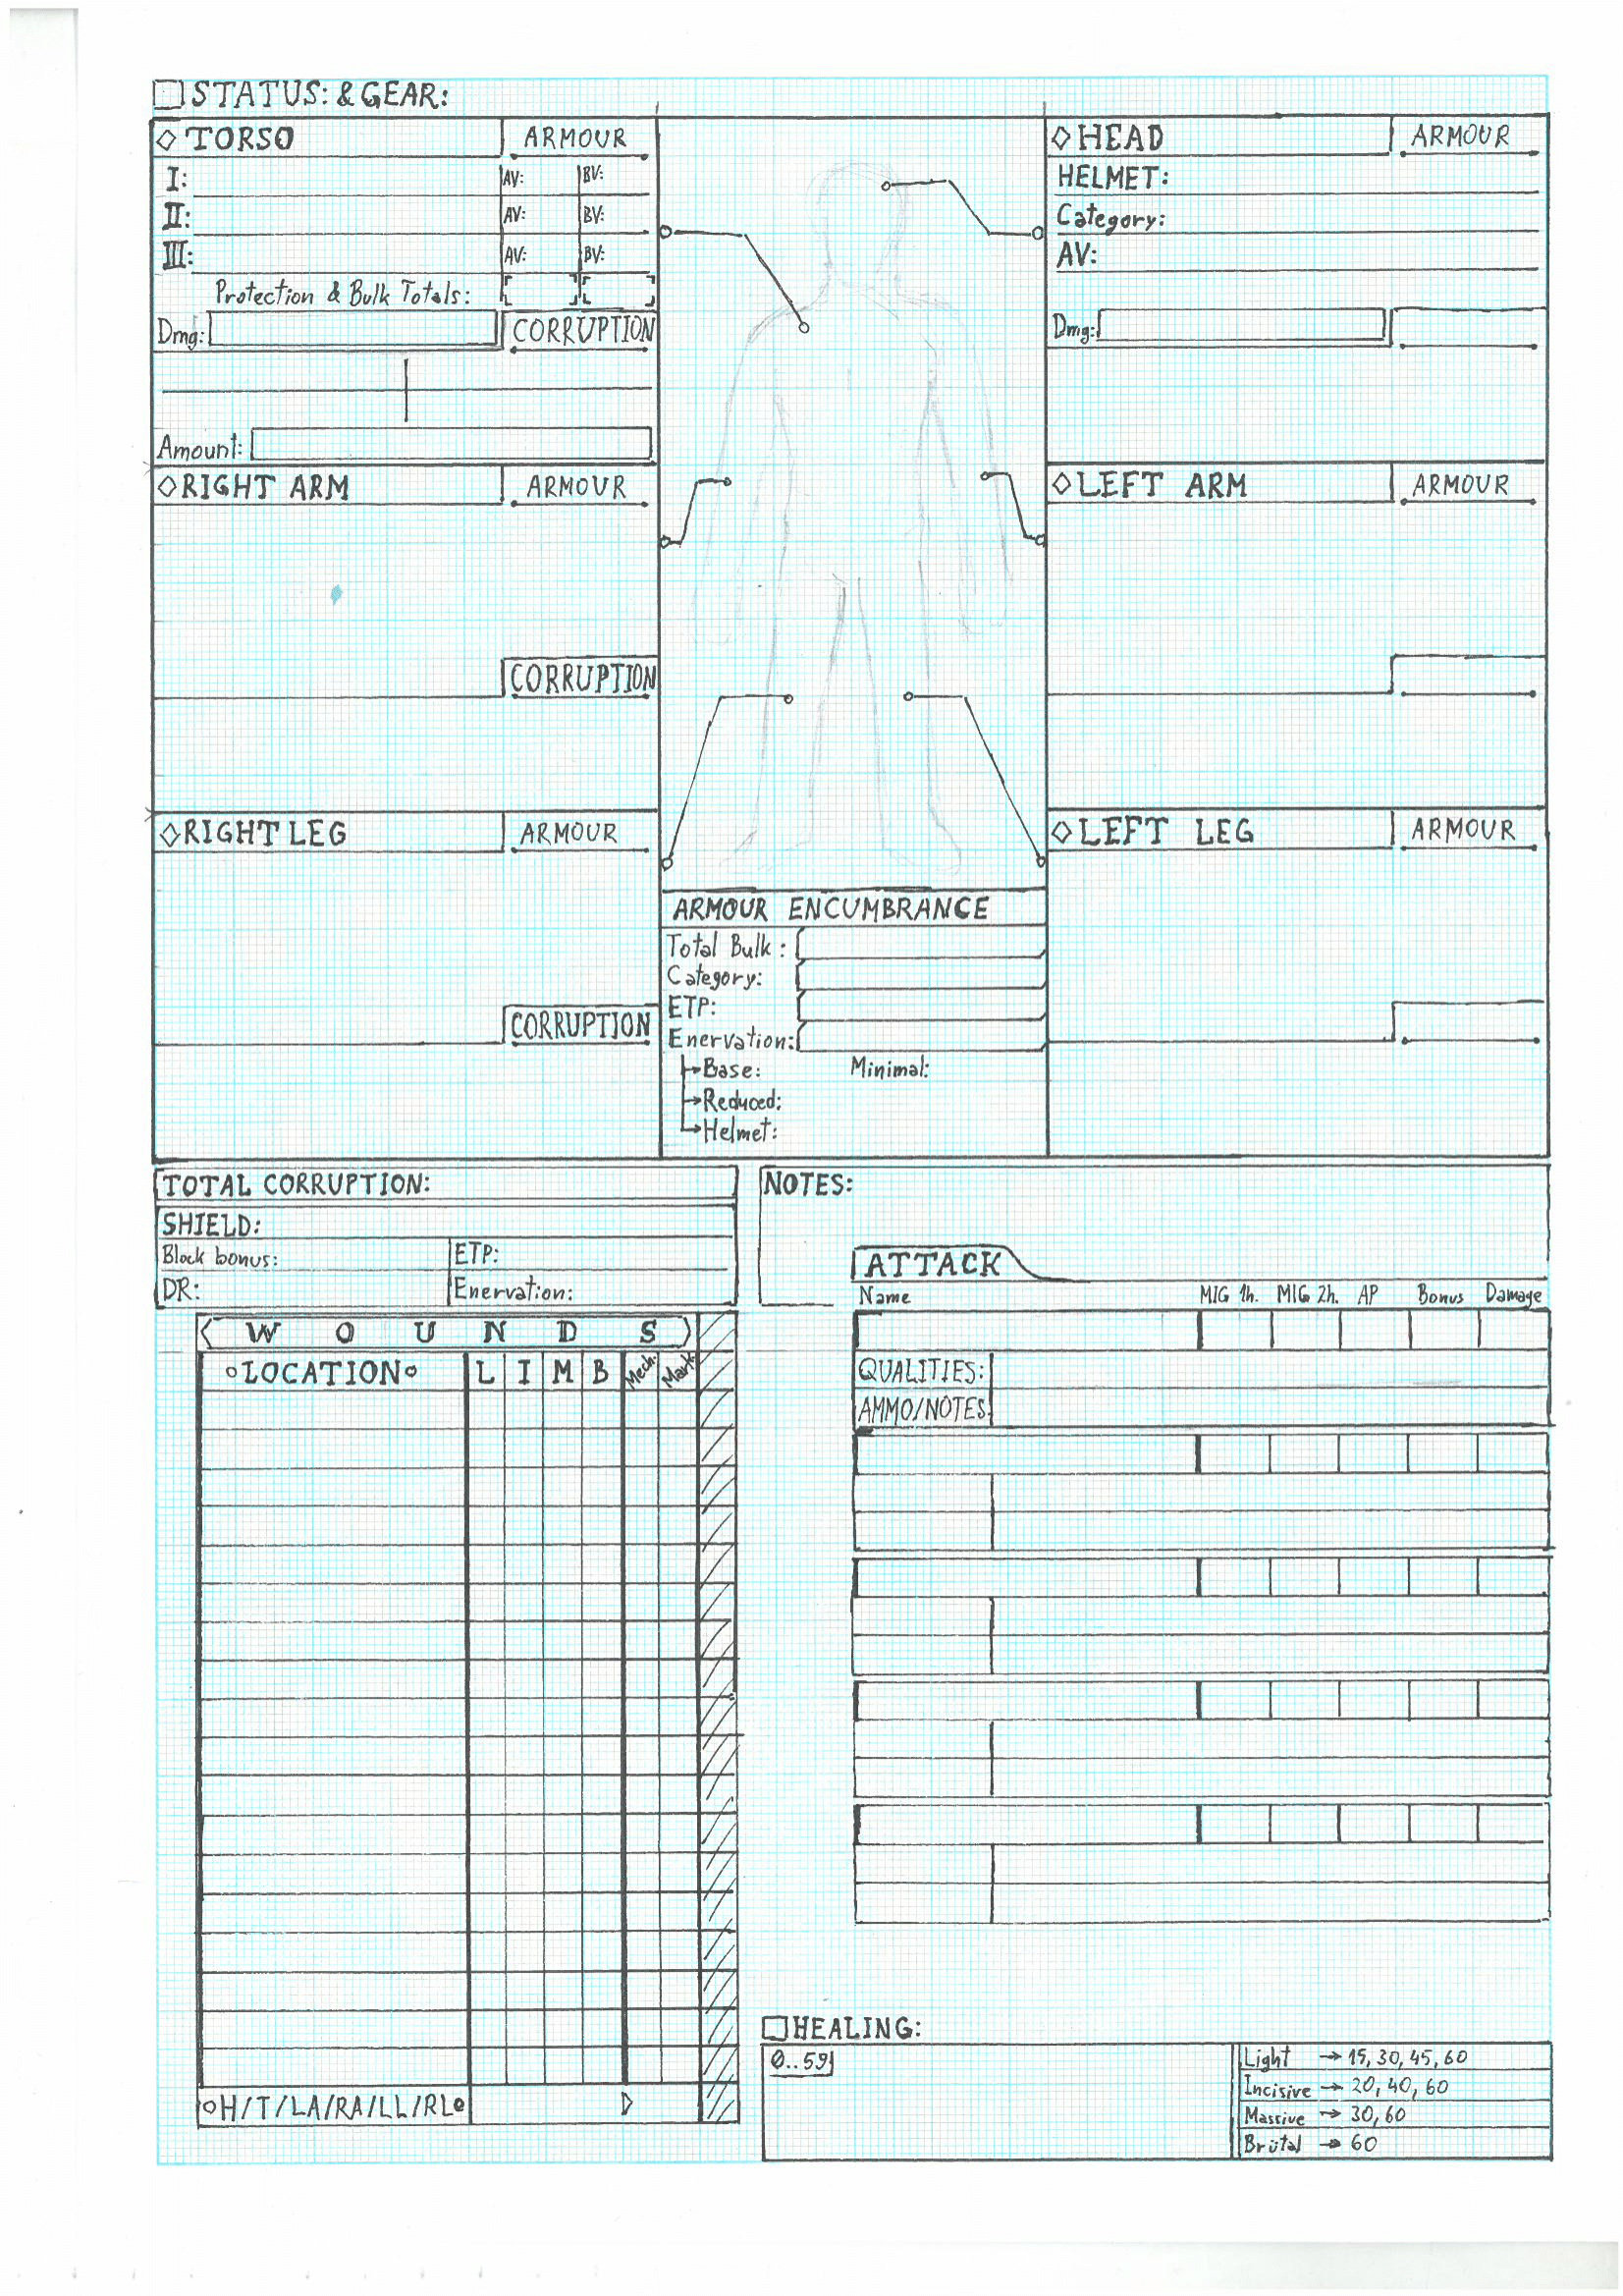 STATUS: & GEAR:
TORSO ARMOUR
I: AV: BV:
II: AV: BV:
III: AV: BV:
Protection & Bulk Totals:
Dmg: CORRUPTION
Amount:
RIGHT ARM ARMOUR
CORRUPTION
RIGHT LEG ARMOUR
CORRUPTION
HEAD ARMOUR
HELMET:
Category:
AV:
Dmg:
LEFT ARM ARMOUR
LEFT LEG ARMOUR
ARMOUR ENCUMBRANCE
Total Bulk:
Category:
ETP:
Enervation:
Base: Minimal:
Reduced:
Helmet:
TOTAL CORRUPTION:
SHIELD:
Block bonus: ETP:
DR: Enervation:
NOTES:
WOUNDS
LOCATION L I M B Mech. Mark.
H/T/LA/RA/LL/RL
ATTACK
Name MIG 1h. MIG 2h. AP Bonus Damage
QUALITIES:
AMMO/NOTES:
HEALING:
0..59
Light → 15, 30, 45, 60
Incisive → 20, 40, 60
Massive → 30, 60
Brutal → 60